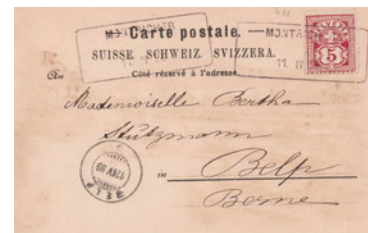 Carte postale.
SUISSE SCHWEIZ SVIZZERA.
Côté réservé à l'adresse.
An
5
11. IV
Mademoiselle Bertha
Stutzmann
in Belp
Berne
BELP